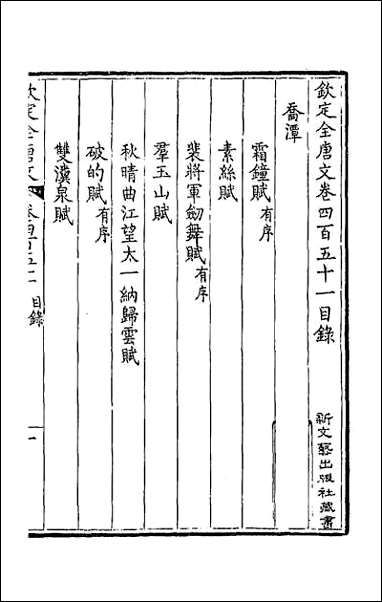 欽定全唐文卷四百五十一目錄
新文藝出版社藏書
喬潭
霜鐘賦有序
素絲賦
裴將軍劒舞賦有序
羣玉山賦
秋晴曲江望太一納歸雲賦
破的賦有序
雙瀵泉賦
欽定全唐文
目錄
一